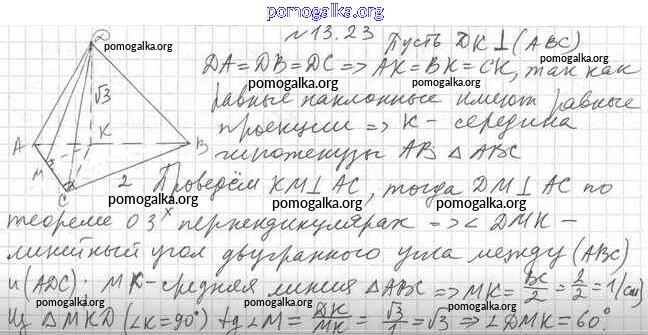 pomogalka.org
№13.23 Пусть DK⊥(ABC)
DA=DB=DC => AK=BK=CK, так как
равные наклонные имеют равные
проекции => K - середина
гипотенузы AB △ABC
Проведём KM⊥AC, тогда DM⊥AC по
теореме о 3х перпендикулярах => ∠DMK -
линейный угол двугранного угла между (ABC)
и (ADC). MK - средняя линия △ABC => MK = BC/2 = 2/2 = 1 (см)
Из △MKD (∠K=90°) tg∠M = DK/MK = √3/1 = √3 => ∠DMK=60°
D
√3
A
K
B
M
C
2
pomogalka.org
pomogalka.org
pomogalka.org
pomogalka.org
pomogalka.org
pomogalka.org
pomogalka.org
pomogalka.org
pomogalka.org
pomogalka.org
pomogalka.org
pomogalka.org